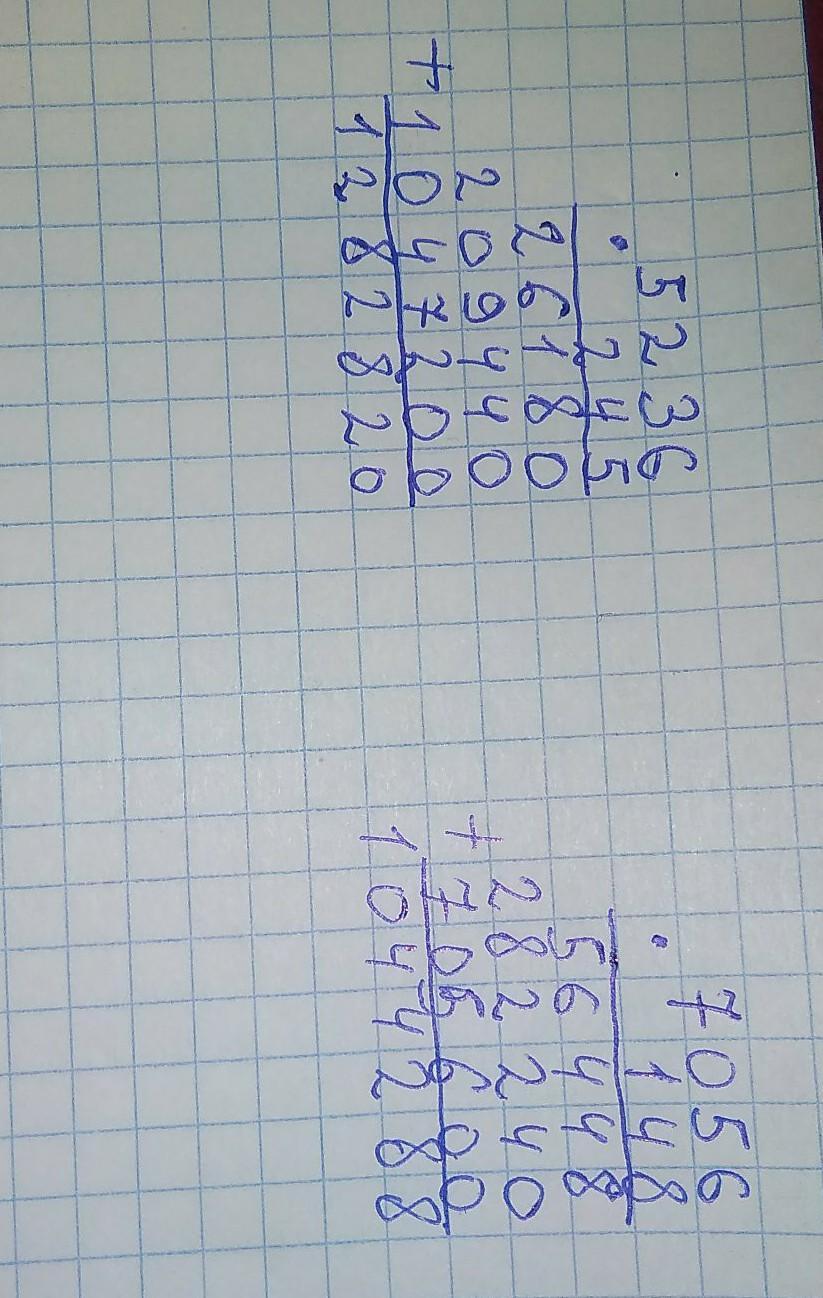 5236
· 245
26180
209440
+ 1047200
1282820
7056
· 148
56448
282240
+ 705600
1044288